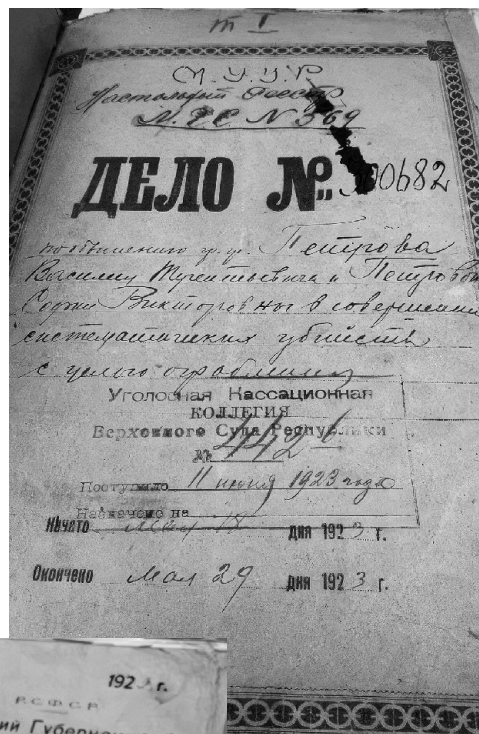 т I
М.У.У.Р
Настольный Реестр
Н.Р.С N 369
ДЕЛО №
00682
по обвинению гр.гр. Петрова
Василия Терентьевича и Петровой
Софьи Викторовны в совершении
систематических убийств
с целью ограбления
Уголовная Кассационная
КОЛЛЕГИЯ
Верховного Суда Республики
№ 442
Поступило 11 июня 1923 года
Назначено на
Начато Мая 18 дня 1923 г.
Окончено Мая 29 дня 1923 г.
192 г.
Р С Ф С Р